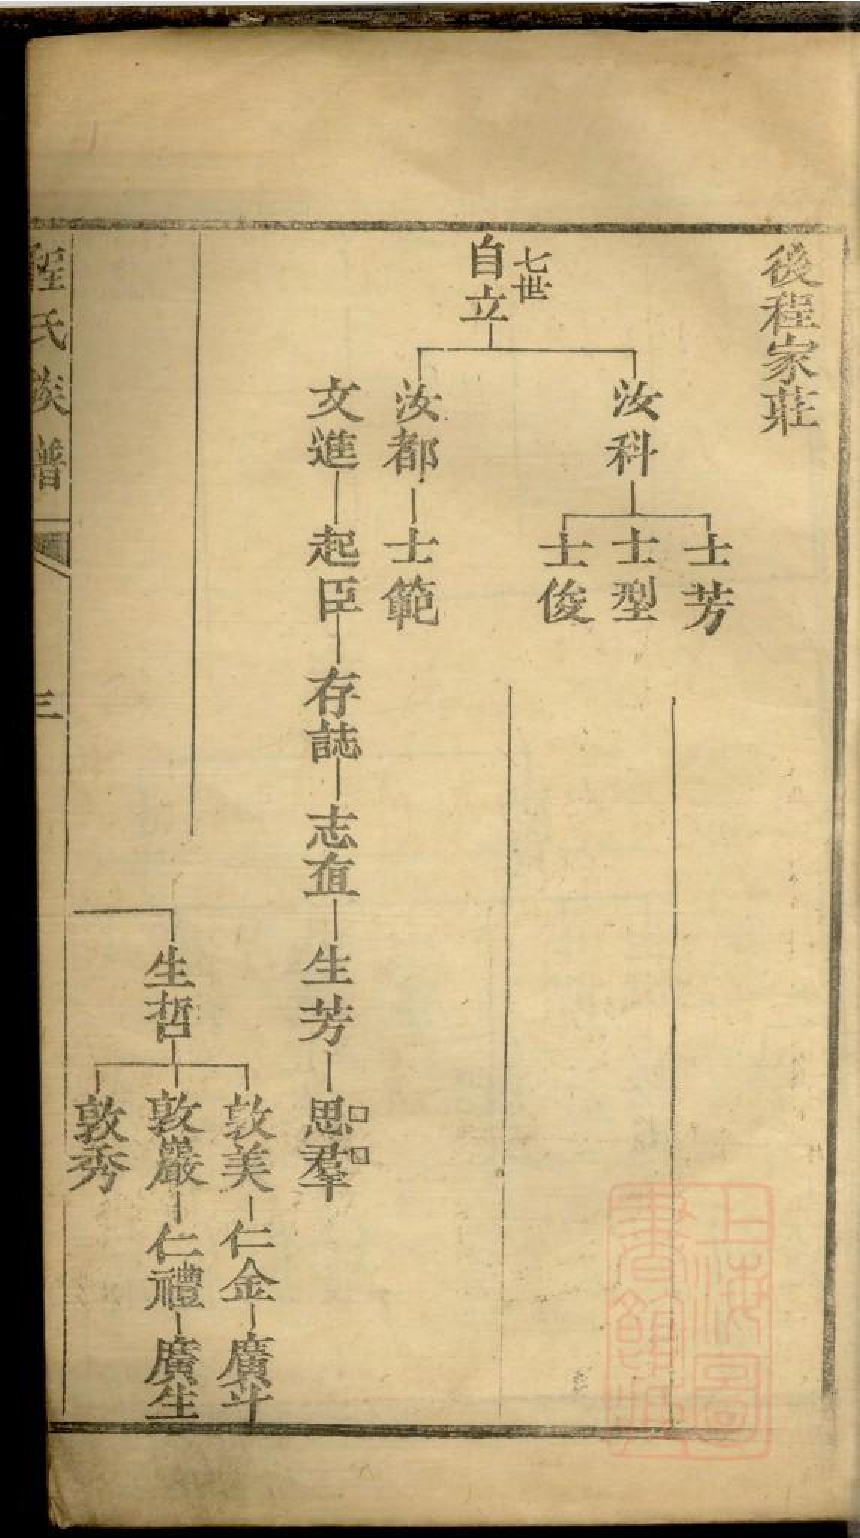 後程家莊
七世
自立
汝科
士芳
士型
士俊
汝都
士範
文進
起臣
存誌
志直
生芳
思羣
生哲
敦美
仁金
廣斗
敦嚴
仁禮
廣生
敦秀
程氏族譜
三
上海圖
書館